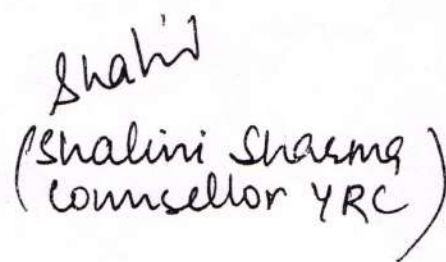 Shalini
(Shalini Sharma
Counsellor YRC)